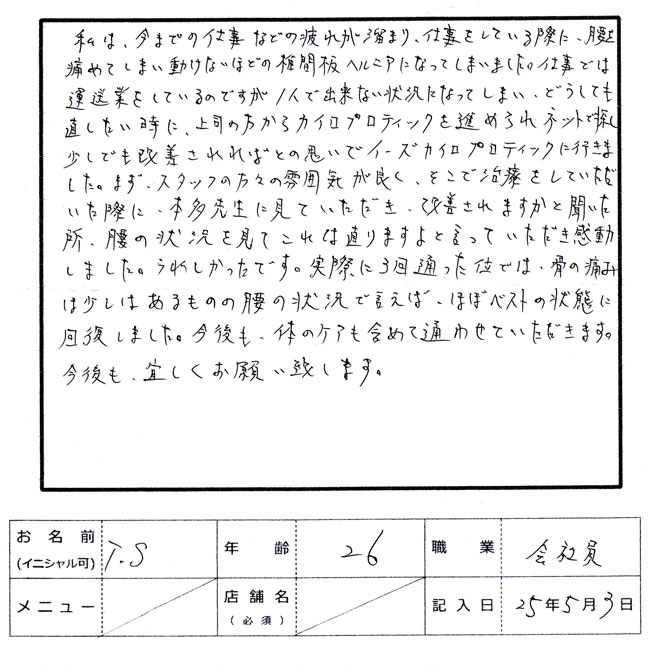 私は、今までの仕事などの疲れが溜まり、仕事をしている際に、腰を
痛めてしまい動けないほどの椎間板ヘルニアになってしまいました。仕事では
運送業をしているのですが1人で出来ない状況になってしまい、どうしても
直したい時に、上司の方からカイロプロティックを進められネットで探し
少しでも改善されればとの思いでイーズカイロプロティックに行きま
した。まず、スタッフの方々の雰囲気が良く、そこで治療をしていただ
いた際に、本多先生に見ていただき、改善されますかと聞いた
所、腰の状況を見てこれは直りますよと言っていただき感動
しました。うれしかったです。実際に3回通った位では、骨の痛み
は少しはあるものの腰の状況で言えば、ほぼベストの状態に
回復しました。今後も、体のケアも含めて通わせていただきます。
今後も、宜しくお願い致します。
お名前 (イニシャル可) T.S 年齢 26 職業 会社員
メニュー 店舗名 (必須) 記入日 25年5月3日